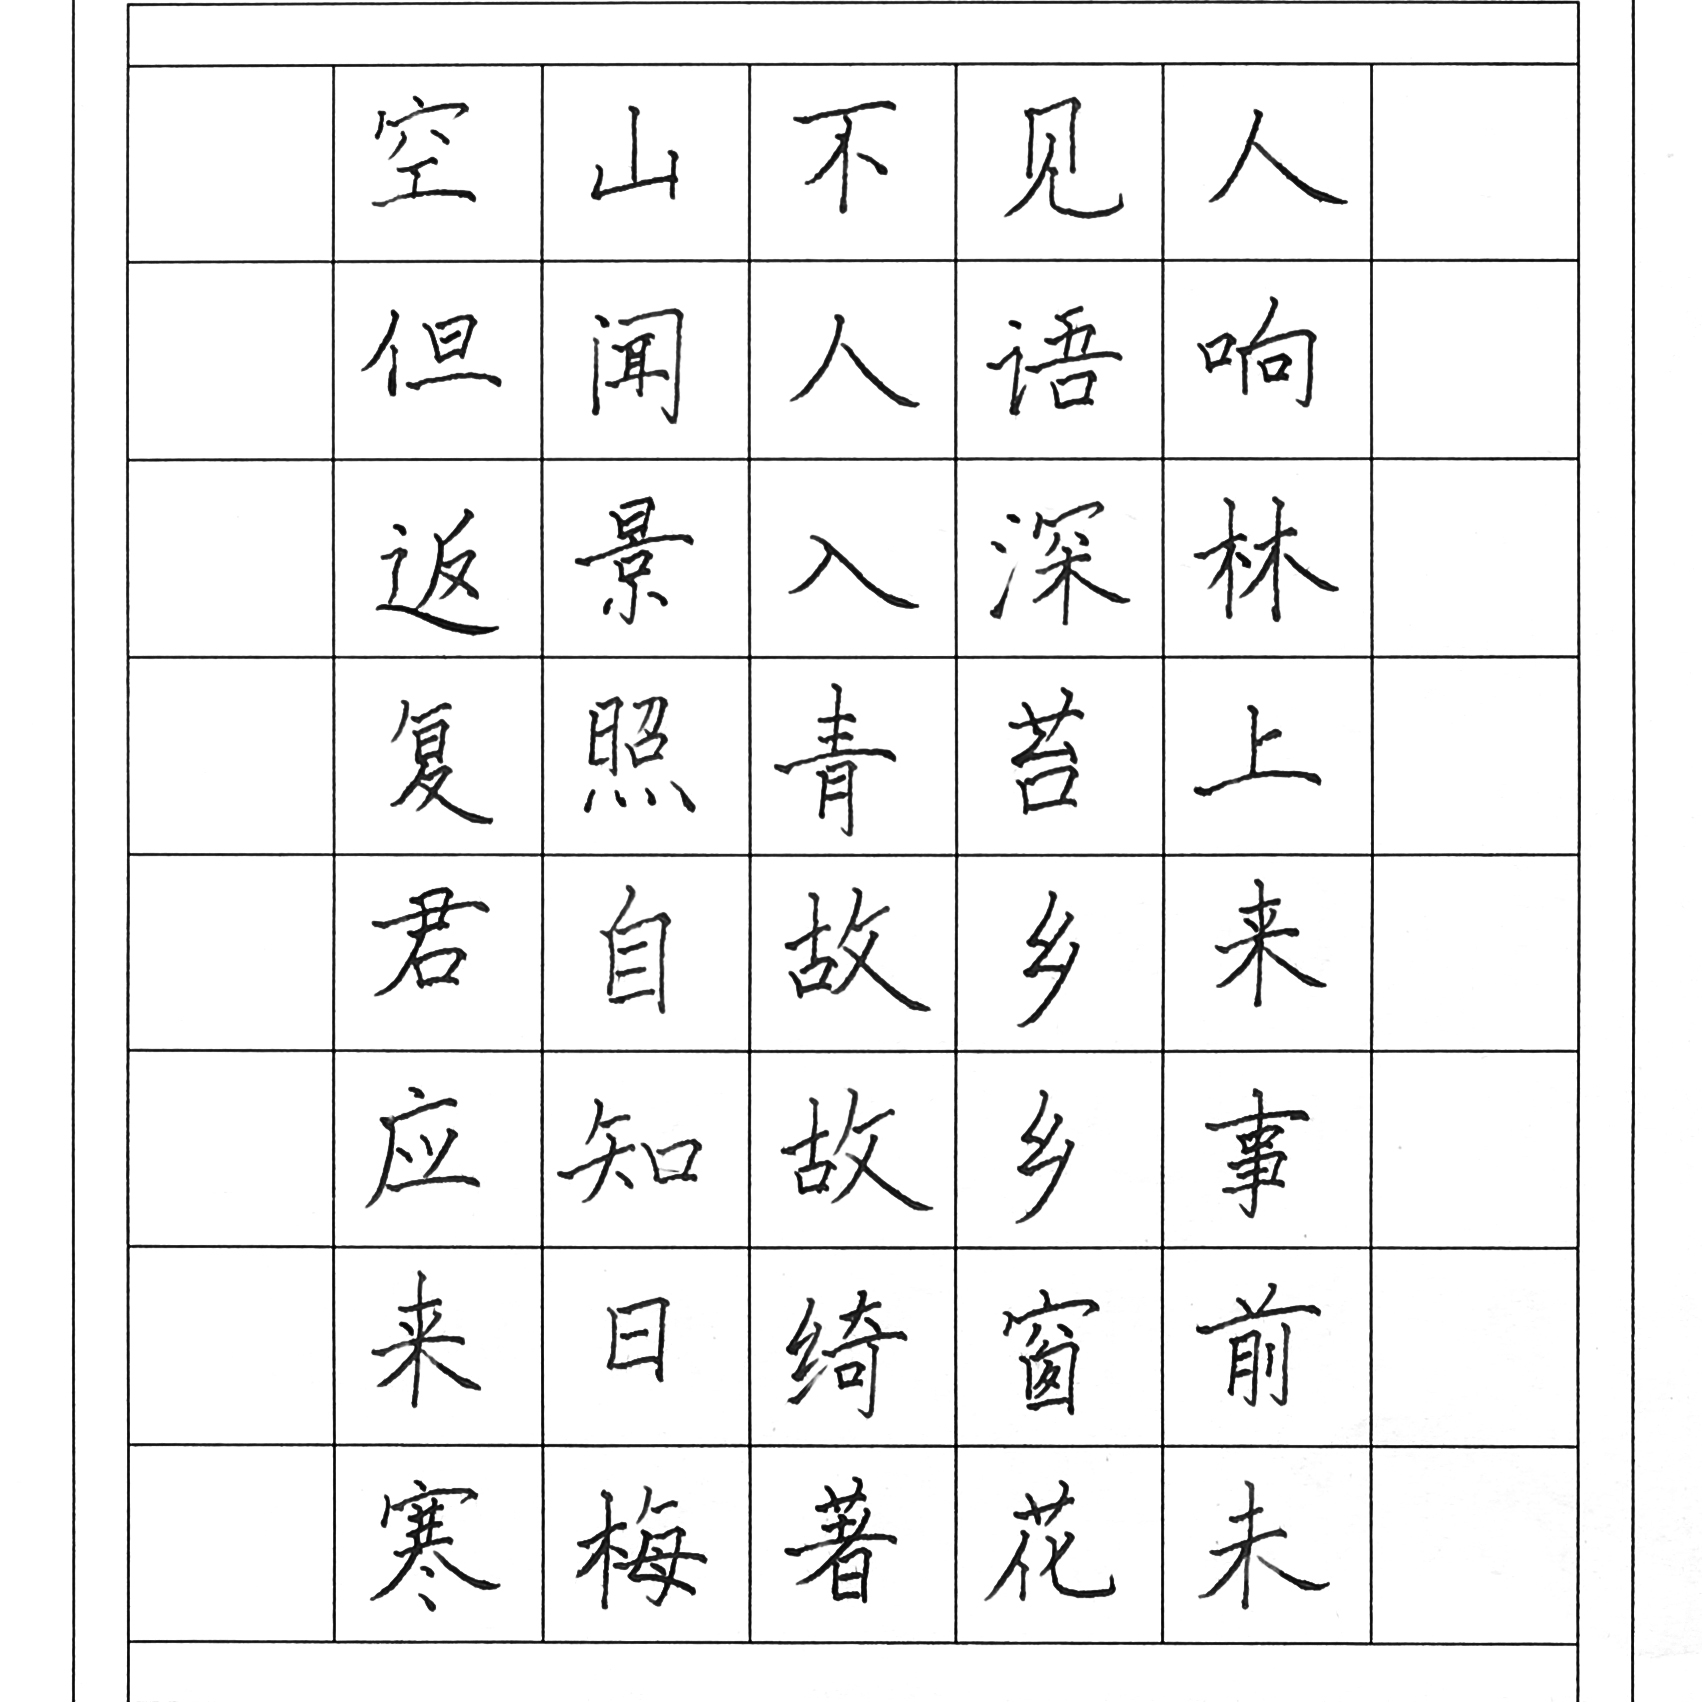 空山不见人
但闻人语响
返景入深林
复照青苔上
君自故乡来
应知故乡事
来日绮窗前
寒梅著花未